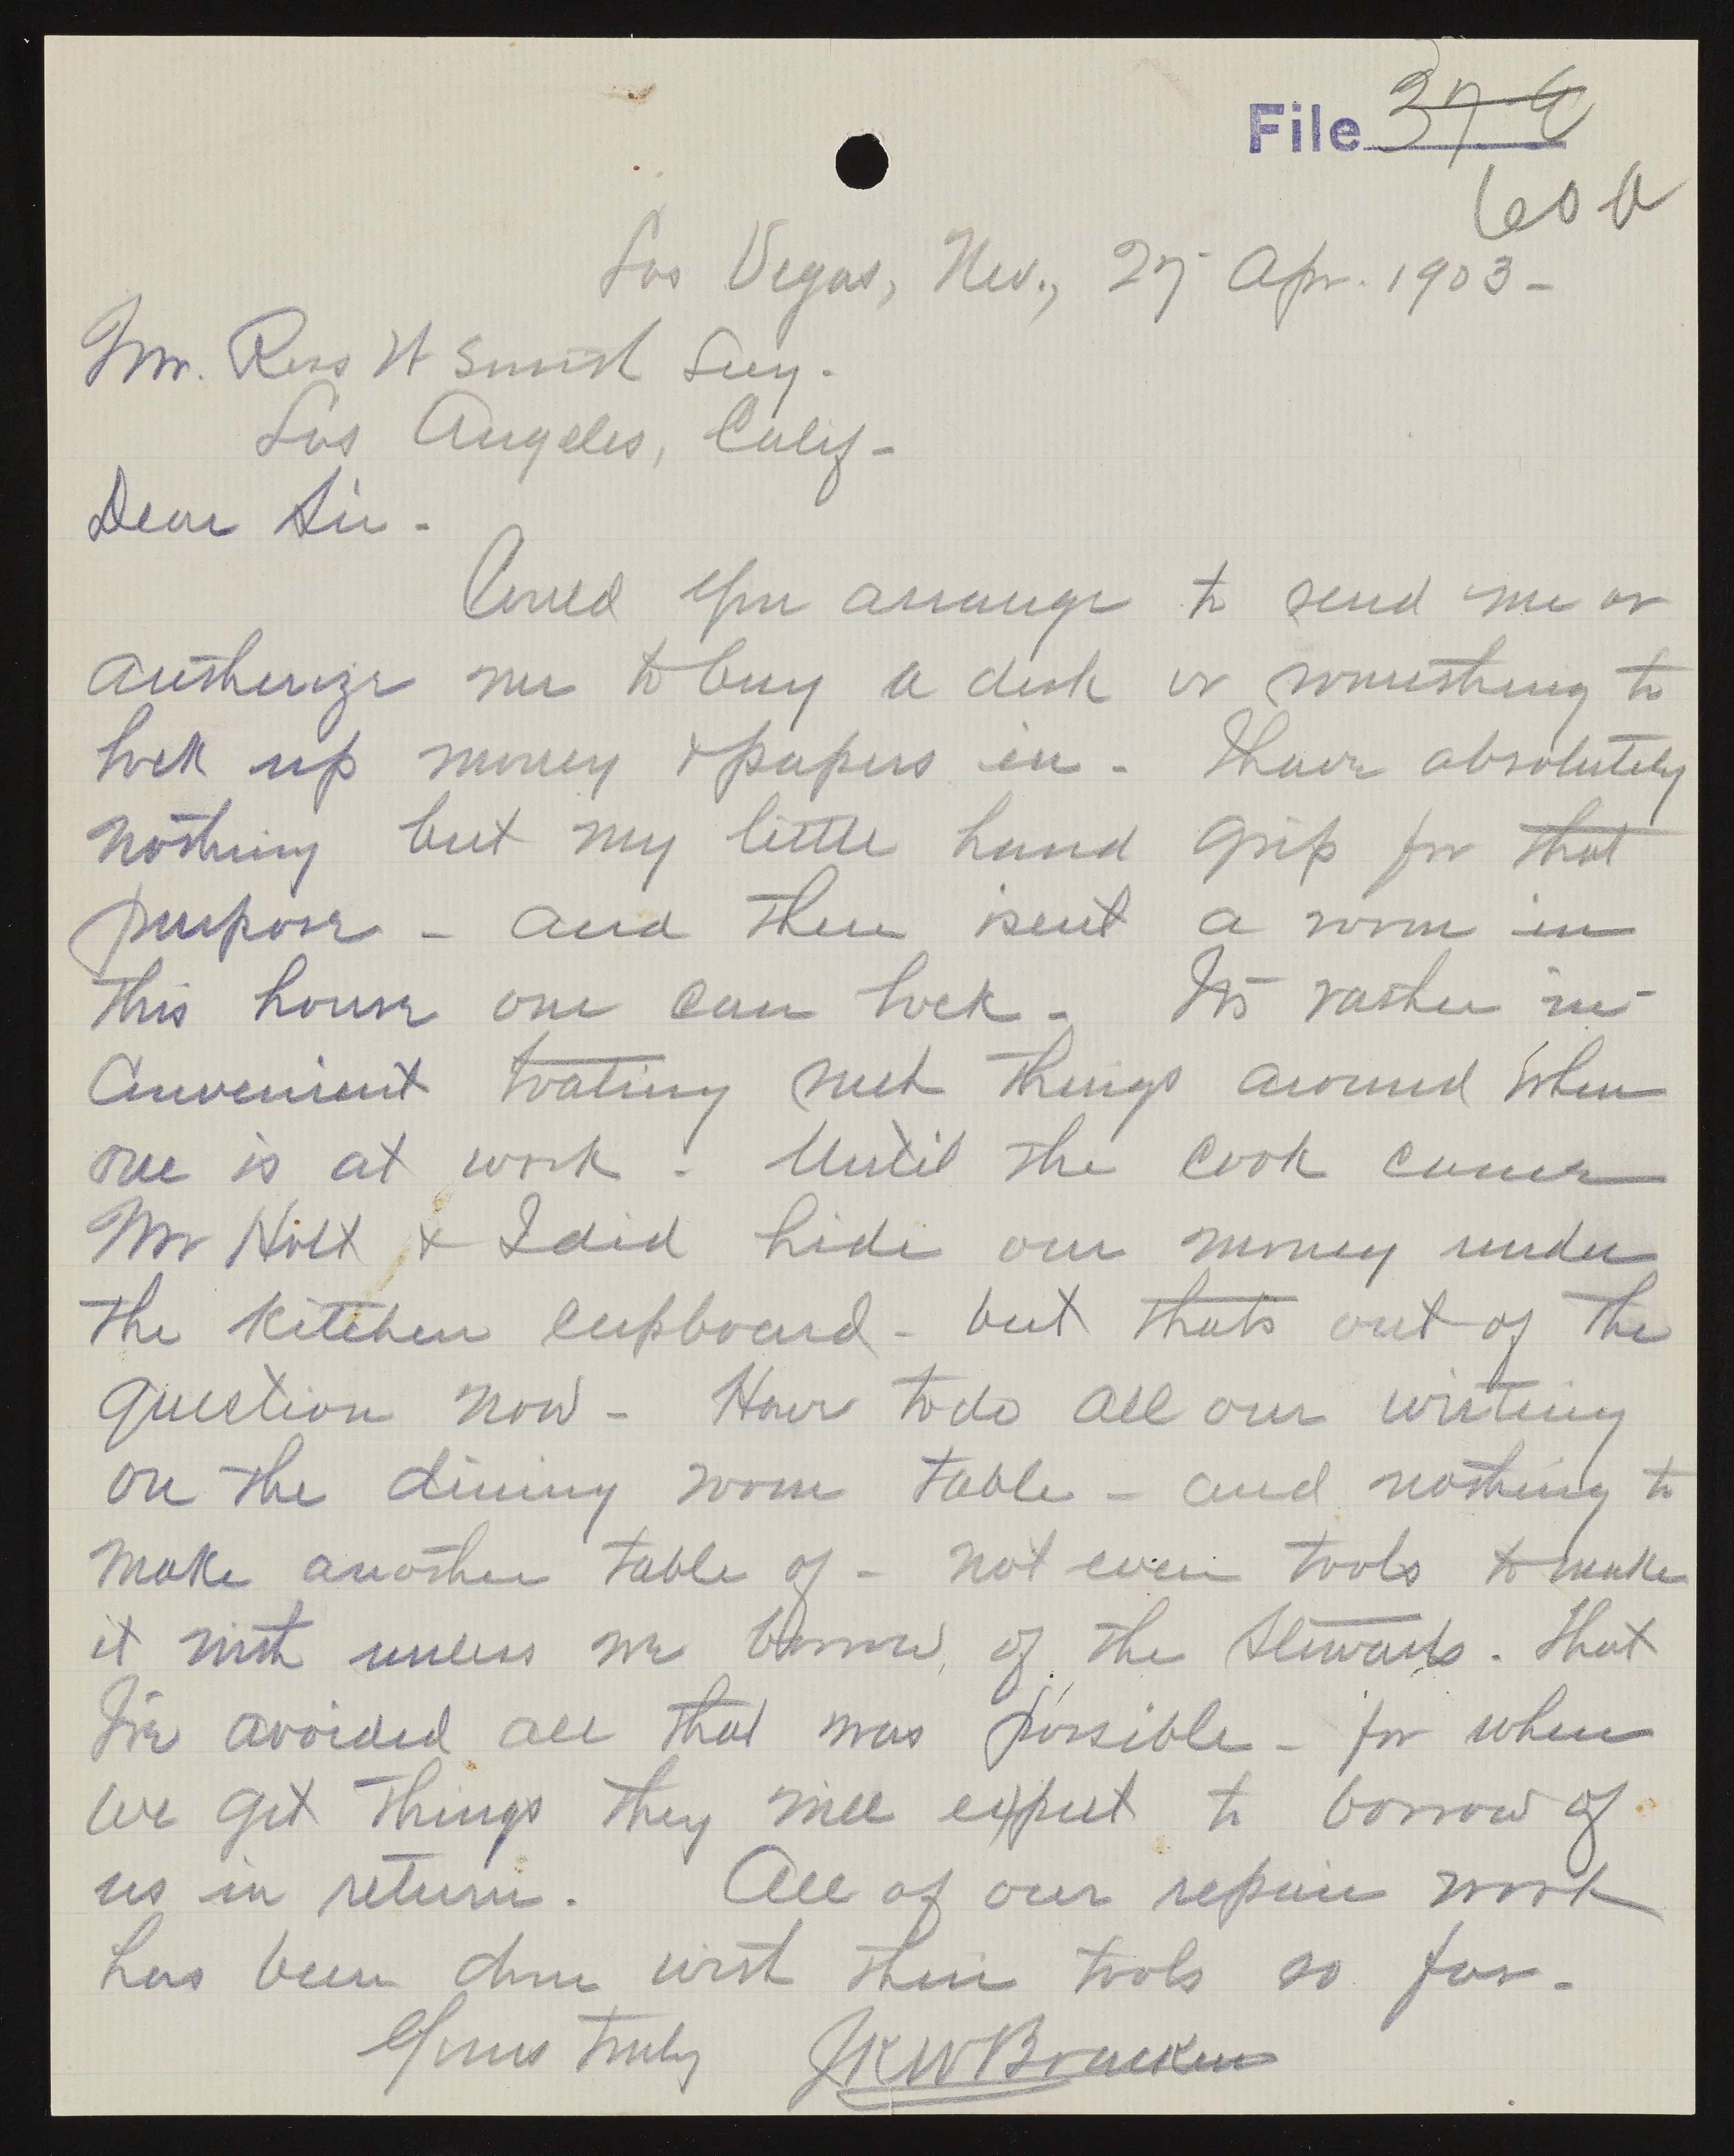 File 37-a
60 a
Las Vegas, Nev., 27 Apr. 1903-
Mr. Ross W Smith Secy-
Los Angeles, Calif-
Dear Sir-
Could you arrange to send me or
authorize me to buy a desk or something to
lock up money & papers in - I have absolutely
nothing but my little hand grip for that
purpose - and there isent a room in
this house one can lock - Its rather in-
convenient toating such things around when
one is at work - Until the cook came
Mr Holt & I did hide our money under
the kitchen cupboard - but thats out of the
question now - Have to do all our writing
on the dining room table - and nothing to
make another table of - not even tools to make
it with unless we borrow of the Stewarts. That
I've avoided all that was possible - for when
we get things they will expect to borrow of
us in return. All of our repair work
has been done with their tools so far-
Yours truly JKWBracken